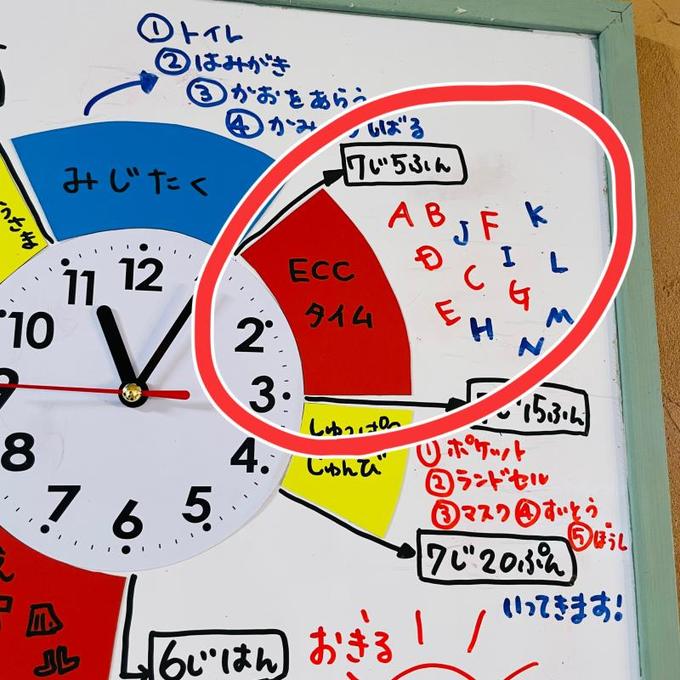 ①トイレ
②はみがき
③かおをあらう
④かみ しばる
みじたく
7じ5ふん
ECC
タイム
A B J F K
D C I L
E H G M
N
11 12
10 2
9 3
8 4
7 6 5
7じ15ふん
しゅっぱつ
じゅんび
①ポケット
②ランドセル
③マスク ④すいとう
⑤ぼうし
7じ20ぷん
いってきます!
おきる
6じはん